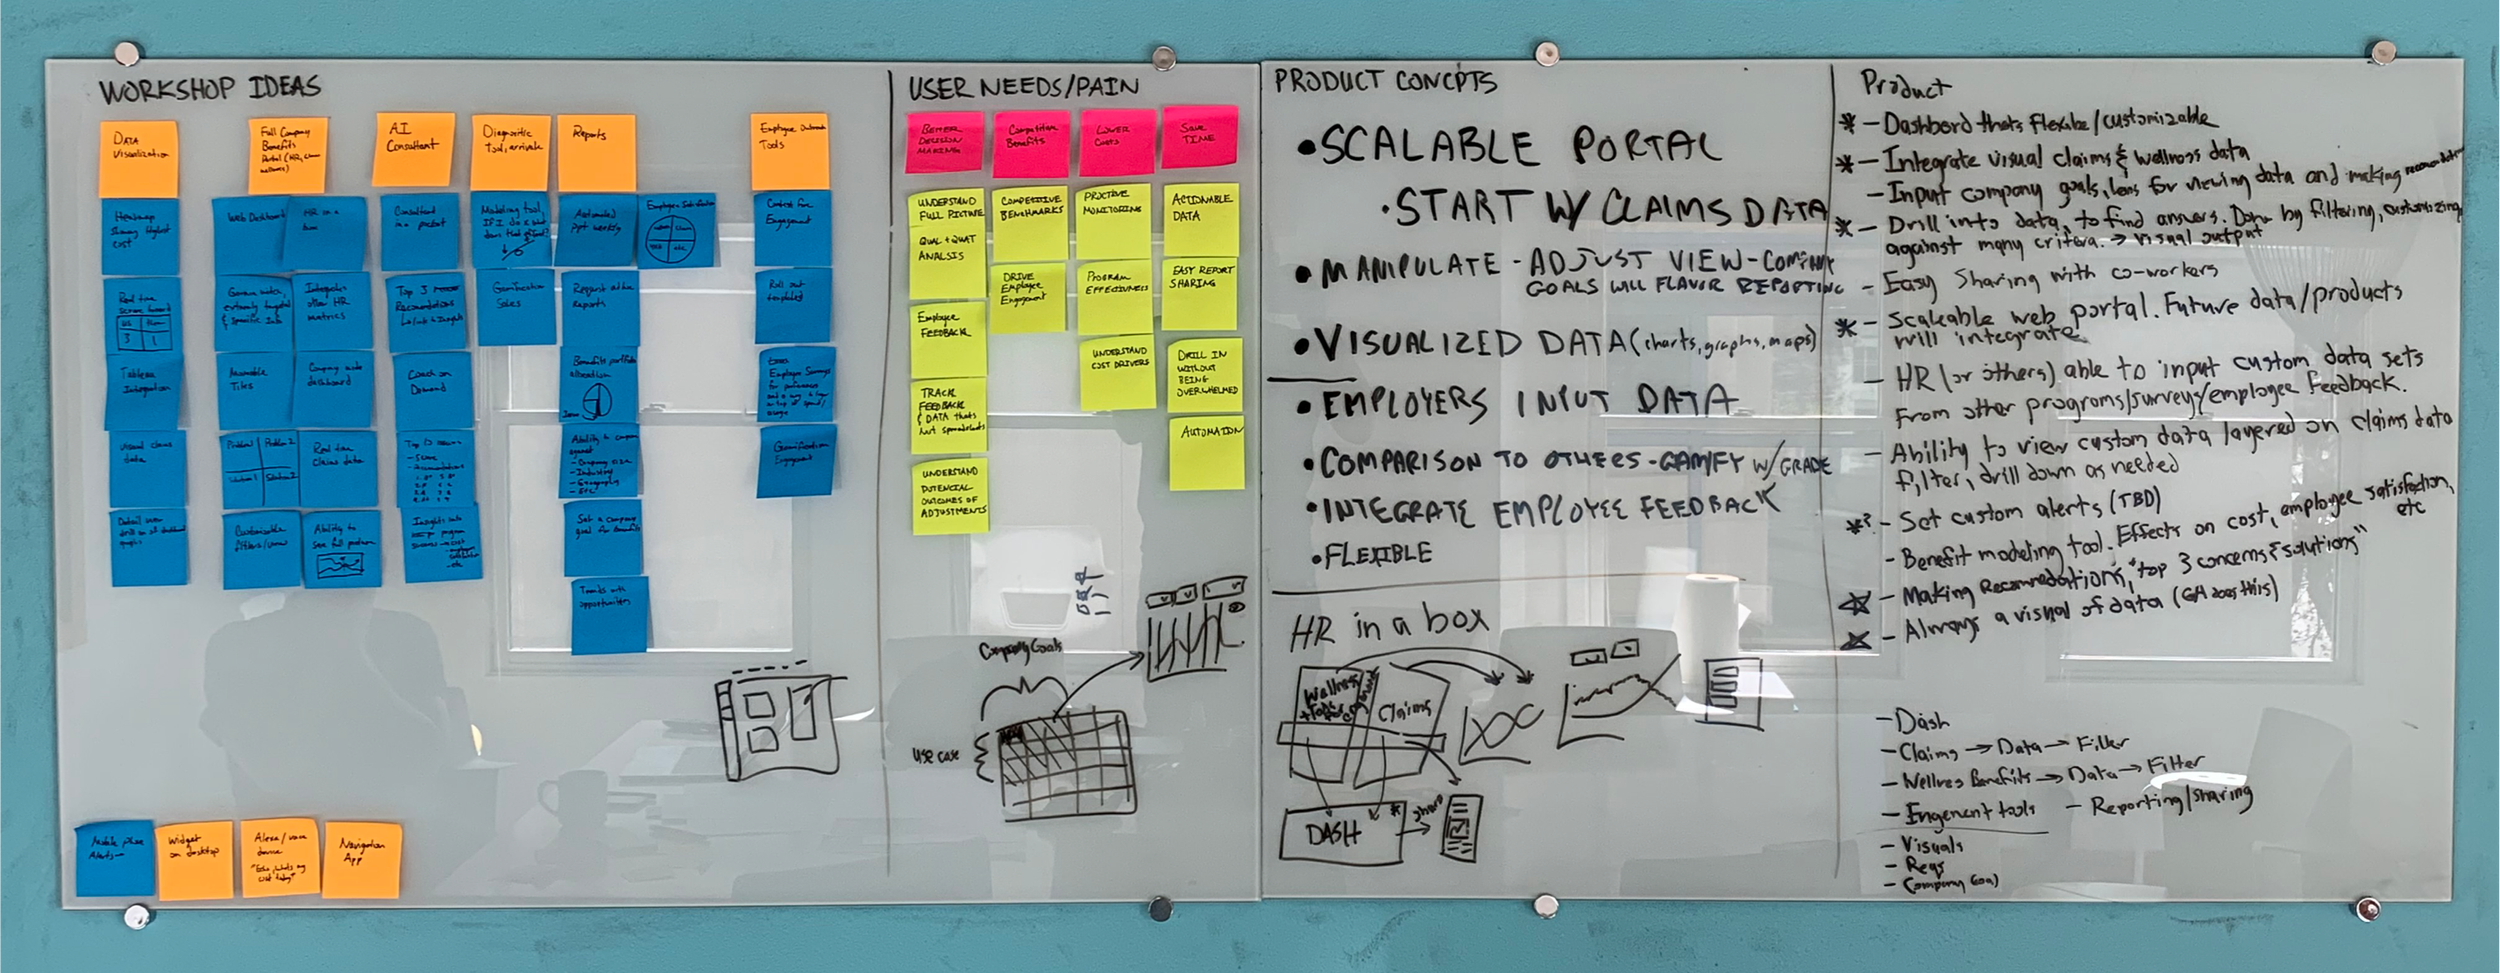 WORKSHOP IDEAS
DATA
Visualization
Heatmap
showing highest
cost
Real time
us
them
3
1
Tableau
Integration
Visual claims
data
Full Company
Benefits
Portal (HR, claims
wellness)
Web Dashboard
HR in a
box
& specific Info
Integrates
other HR
metrics
Tiles
Company wide
dashboard
Problem 1
Problem 2
Solution 1
Solution 2
Real time
claims data
Customizable
filters/views
Ability to
see full picture
AI
Consultant
Consultant
in a pocket
Top 3
Recomendations
Coach on
Demand
Top 10
Insights into
program
success
cost
etc
Diagnostic
Tool,
Modeling tool,
IF I do x what
does that effect?
Gamification
Sales
Reports
Automated
ppt weekly
Employee Satisfaction
Request adhoc
Reports
Benefits portfolio
allocation
Ability to compare
against
- Company size
- Industry
- Geography
- Etc
Set a company
goal for benefits
Trends with
opportunities
Employee Outreach
Tools
Contest for
Engagement
Roll out
templates
Employee Surveys
for preferences
Gamification
Engagement
Mobile phone
Alerts—
Widget
on desktop
Alexa/voice
device
cost today"
Navigation
App
USER NEEDS/PAIN
BETTER
DECISION
MAKING
UNDERSTAND
FULL PICTURE
QUAL + QUAT
ANALSIS
Employee
FEEDBACK
TRACK
FEEDBACK
& DATA thats
not spreadsheets
UNDERSTAND
POTENCIAL
OUTCOMES OF
ADJUSTMENTS
Competitive
Benefits
COMPETITIVE
BENCHMARKS
DRIVE
Employee
Engagement
LOWER
Costs
PROCTIVE
MONITORING
PROGRAM
EFFECIVNESS
UNDERSTAND
COST DRIVERS
SAVE
TIME
ACTIONABLE
DATA
EASY REPORT
SHARING
DRILL IN
WITHOUT
BEING
OVERWHELMED
AUTOMATION
Company Goals
Use case
PRODUCT CONCPTS
• SCALABLE PORTAL
• START W/ CLAIMS DATA
• MANIPULATE - ADJUST VIEW - COMPANY
GOALS WILL FLAVOR REPORTING
• VISUALIZED DATA (charts, graphs, maps)
• EMPLOYERS INPUT DATA
• COMPARISON TO OTHERS - GAMIFY W/ GRADE
• INTEGRATE EMPLOYEE FEEDBACK
• FLEXIBLE
HR in a box
Wellness
Claims
DASH
*
share
Product
* - Dashbord thats flexible/customizable
* - Integrate visual claims & wellness data
- Input company goals, lens for viewing data and making
* - Drill into data, to find answers. Done by filtering, customizing
against many critera. → visual output
- Easy Sharing with co-workers
* - Scaleable web portal. Future data/products
will integrate
- HR (or others) able to input custom data sets
From other programs/survey/employee feedback.
- Ability to view custom data layered on claims data
filter, drill down as needed
*? - Set custom alerts (TBD)
- Benefit modeling tool. Effects on cost, employee satisfaction,
etc
- Making Recomendations, "top 3 concerns & solutions"
- Always a visual of data (GA does this)
- Dash
- Claims → Data → Filter
- Wellnes Benefits → Data → Filter
- Engement tools - Reporting/sharing
- Visuals
- Reqs
- Company Goal